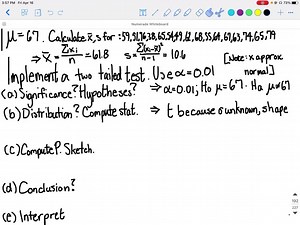 2:57 PM Fri Apr 16
73%
Numerade Whiteboard
μ = 67. Calculate x̄, s for : 59,
⇒ x̄ = Σxi/n = 61.8 s = = 10.6 [Note: x approx normal]
Implement a two tailed test. Use α = 0.01
(a) Significance? Hypotheses? ⇒ α = 0.01; H₀ μ = 67. Hₐ μ ≠ 67
(b) Distribution? Compute stat. ⇒ t because σ unknown, shape
(c) Compute P. Sketch.
(d) Conclusion?
(e) Interpret